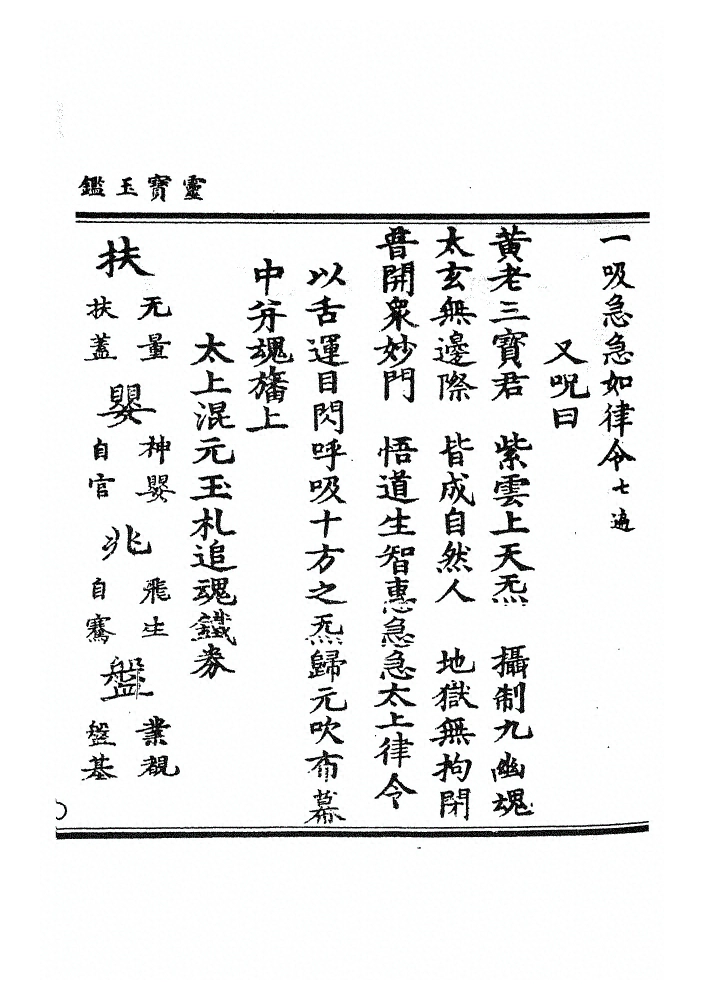 靈寶玉鑑
一吸急急如律令七遍
又呪曰
黃老三寶君 紫雲上天炁 攝制九幽魂
太玄無邊際 皆成自然人 地獄無拘閉
普開衆妙門 悟道生智惠急急太上律令
以舌運目閃呼吸十方之炁歸元吹布幕
中并魂旛上
太上混元玉札追魂鐵券
扶 无量 扶蓋 嬰 神嬰 自官 兆 飛生 自騫 盤 業觀 盤基